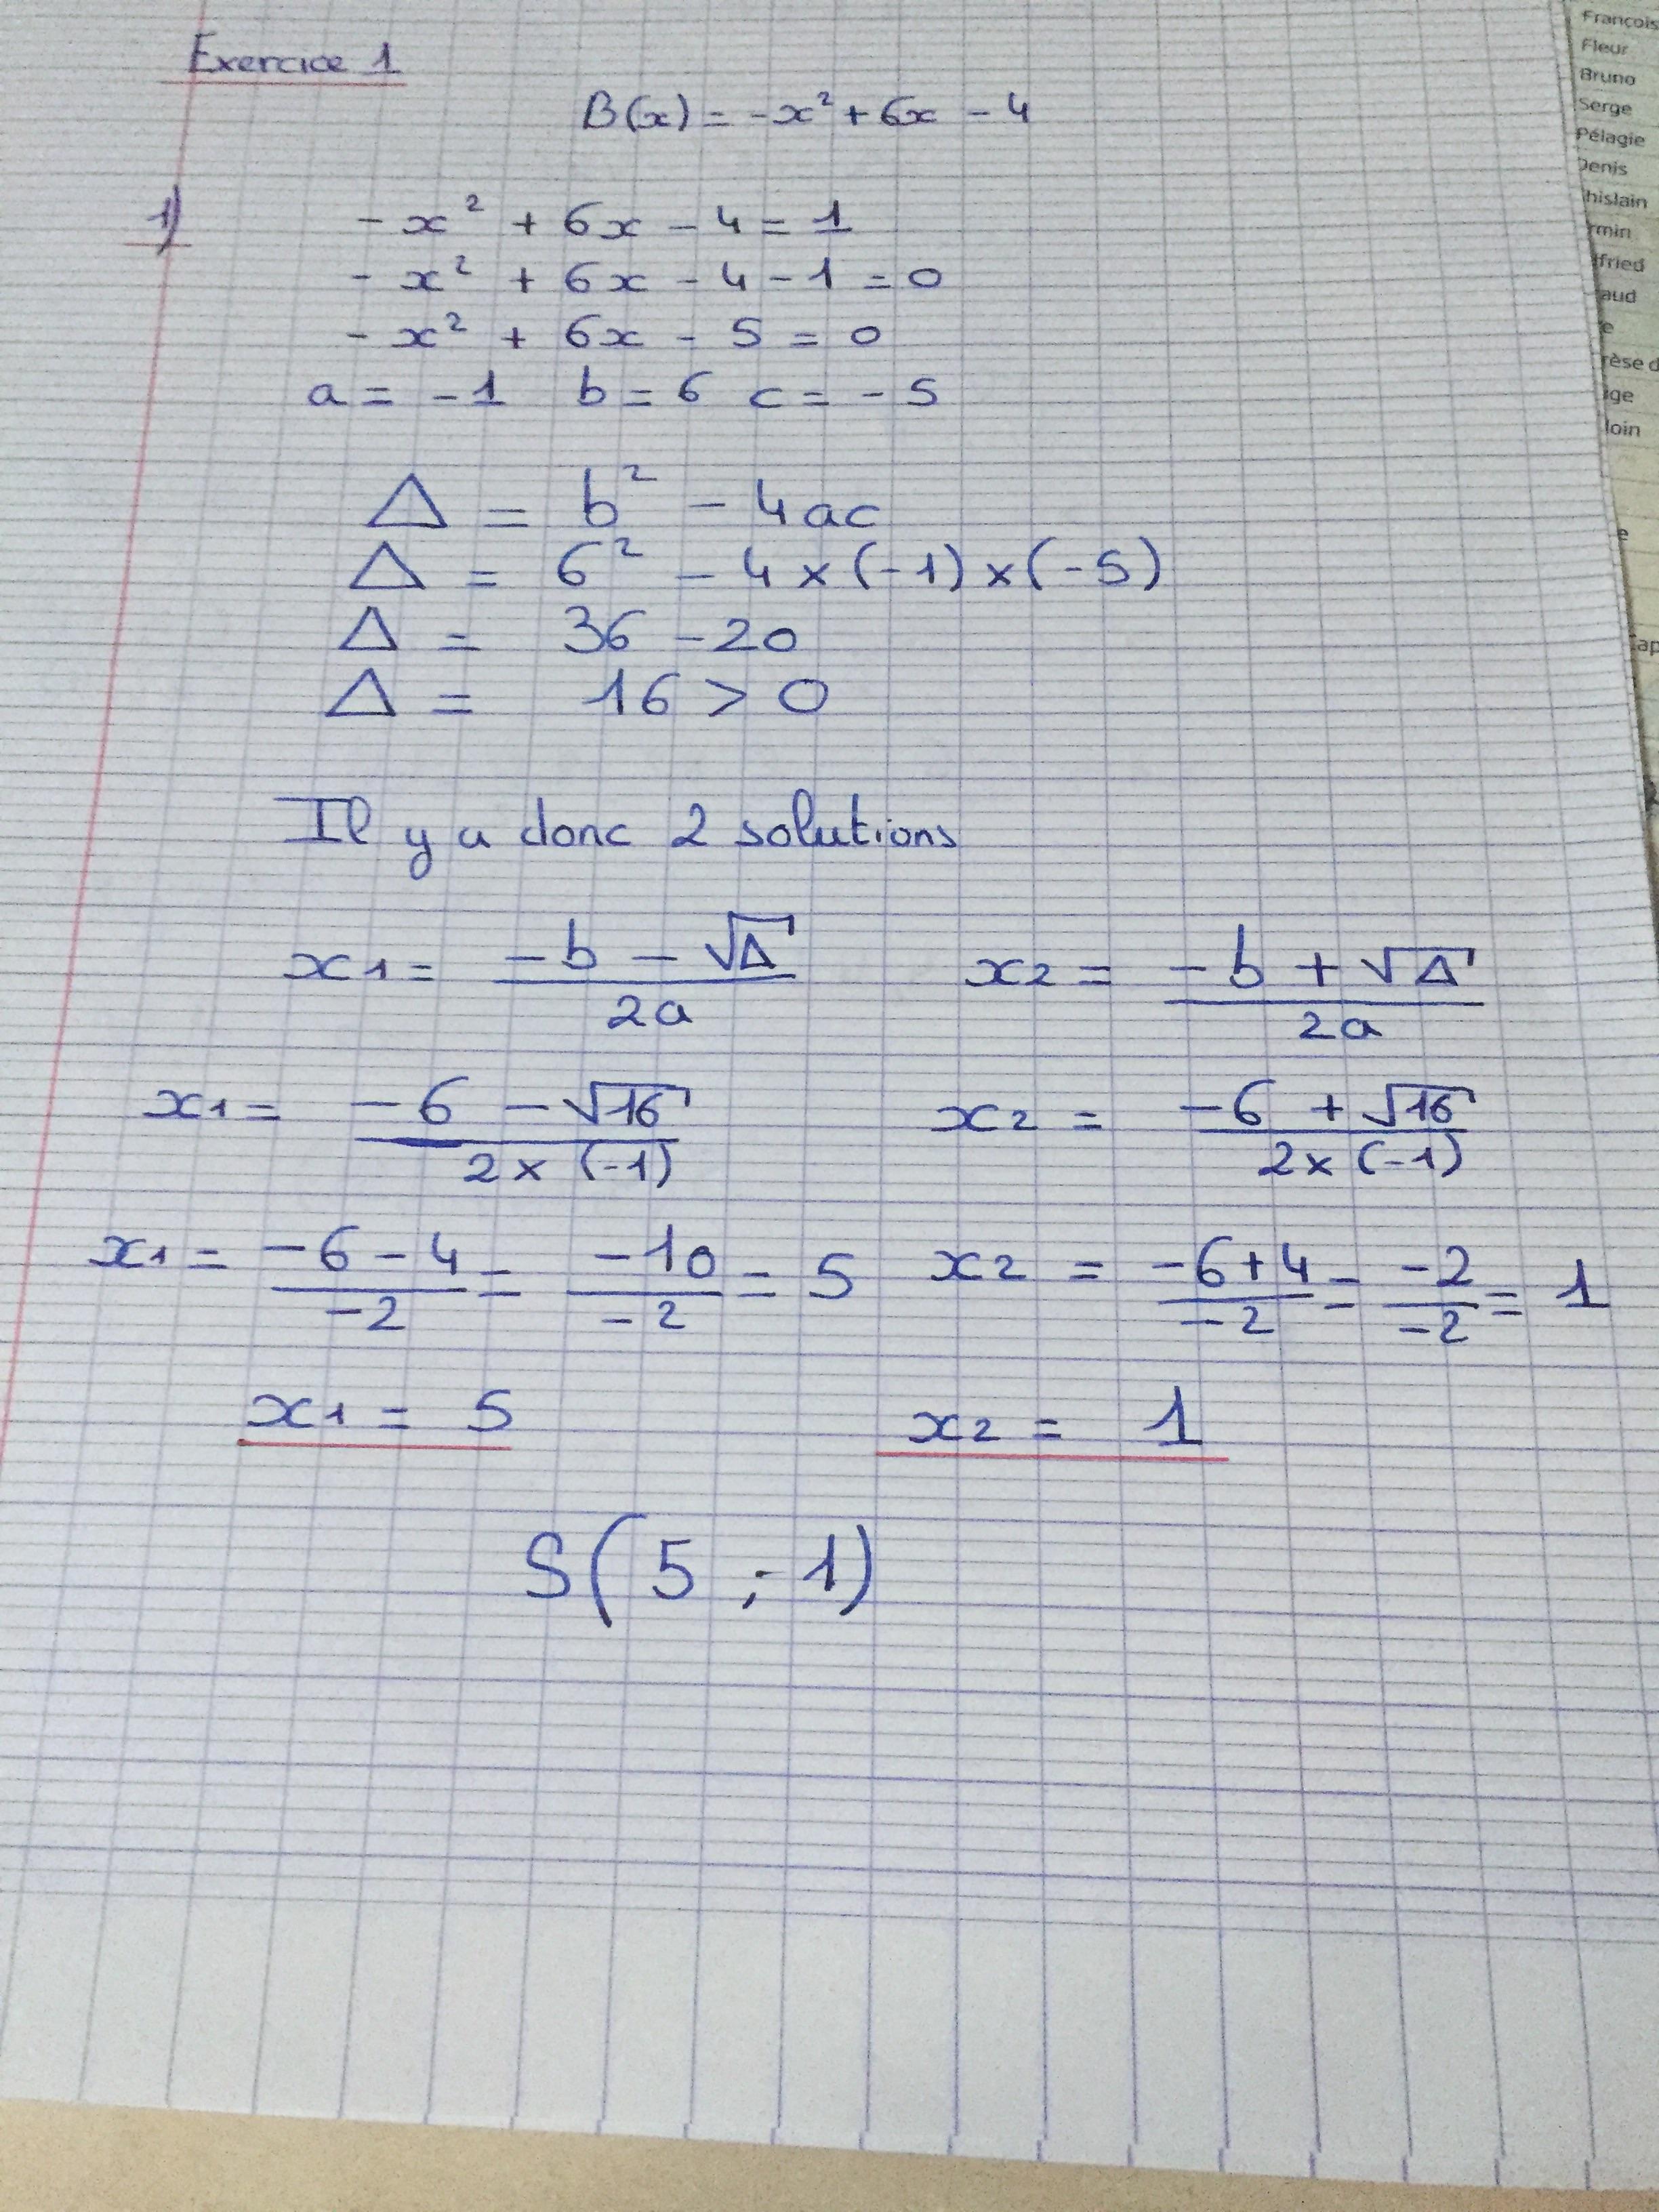 Exercice 1
B(x) = -x² + 6x - 4
1) -x² + 6x - 4 = 1
-x² + 6x - 4 - 1 = 0
-x² + 6x - 5 = 0
a = -1 b = 6 c = -5
Δ = b² - 4ac
Δ = 6² - 4 × (-1) × (-5)
Δ = 36 - 20
Δ = 16 > 0
Il y a donc 2 solutions
x1 = (-b - √Δ) / 2a x2 = (-b + √Δ) / 2a
x1 = (-6 - √16) / 2 × (-1) x2 = (-6 + √16) / 2 × (-1)
x1 = (-6 - 4) / -2 = -10 / -2 = 5 x2 = (-6 + 4) / -2 = -2 / -2 = 1
x1 = 5 x2 = 1
S(5 ; 1)
François
Fleur
Bruno
Serge
Pélagie
Denis
hislain
rmin
lfried
aud
e
rèse d
ige
loin